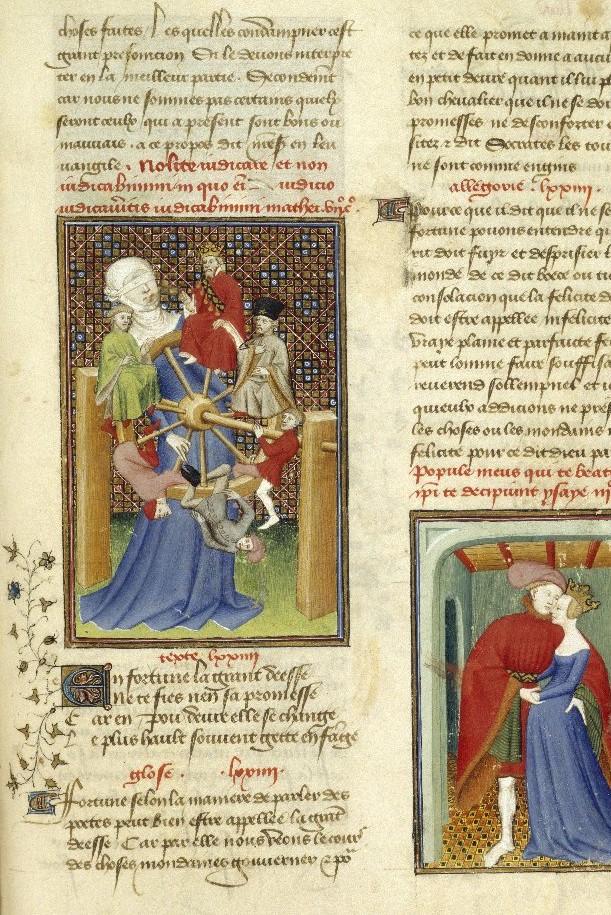 choses faites / les quelles condampner cest
grant presomcion On le devons interpre
ter en la meilleur partie. Secondement
car nous ne sommes pas certains quielx
seront ceulx qui a present sont bons ou
mauvais. a ce propos dit en leu
vangile. Nolite iudicare et non
iudicabimini in quo iudicio
iudicaveritis iudicabimini mathei
texte lxxiiii
En fortune la grant deesse
Ne te fies nen sa promesse
Car en pou deure elle se change
Le plus hault souvent gette en fange
glose . lxxiiii.
Fortune selon la maniere de parler des
poetes peut bien estre appellee la grant
deesse Car par elle nous veons le cours
des choses mondaines gouverner
ce que elle promet a maint a
tez et de fait en donne a aucu
en petit deure quant il lui p
bon chevalier que il ne se do
promesses ne desconforter e
sitez z dit Socrates les tou
ne sont comme engins
allegorie lxxiiii.
Pource que il dit que il ne se
fortune pouons entendre qu
rit doit fuyr et desprisier l
monde de ce dit boece ou ti
consolacion que la felicite d
doit estre appellee infelicite
vraye plaine et parfaicte fe
peut lomme faire souffisa
reverend sollempnel et
quieulx addicions ne pres
les choses ou les mondains
felicite pour ce dit dieu pa
Popule meus qui te beat
ipsi te decipiunt ysaye